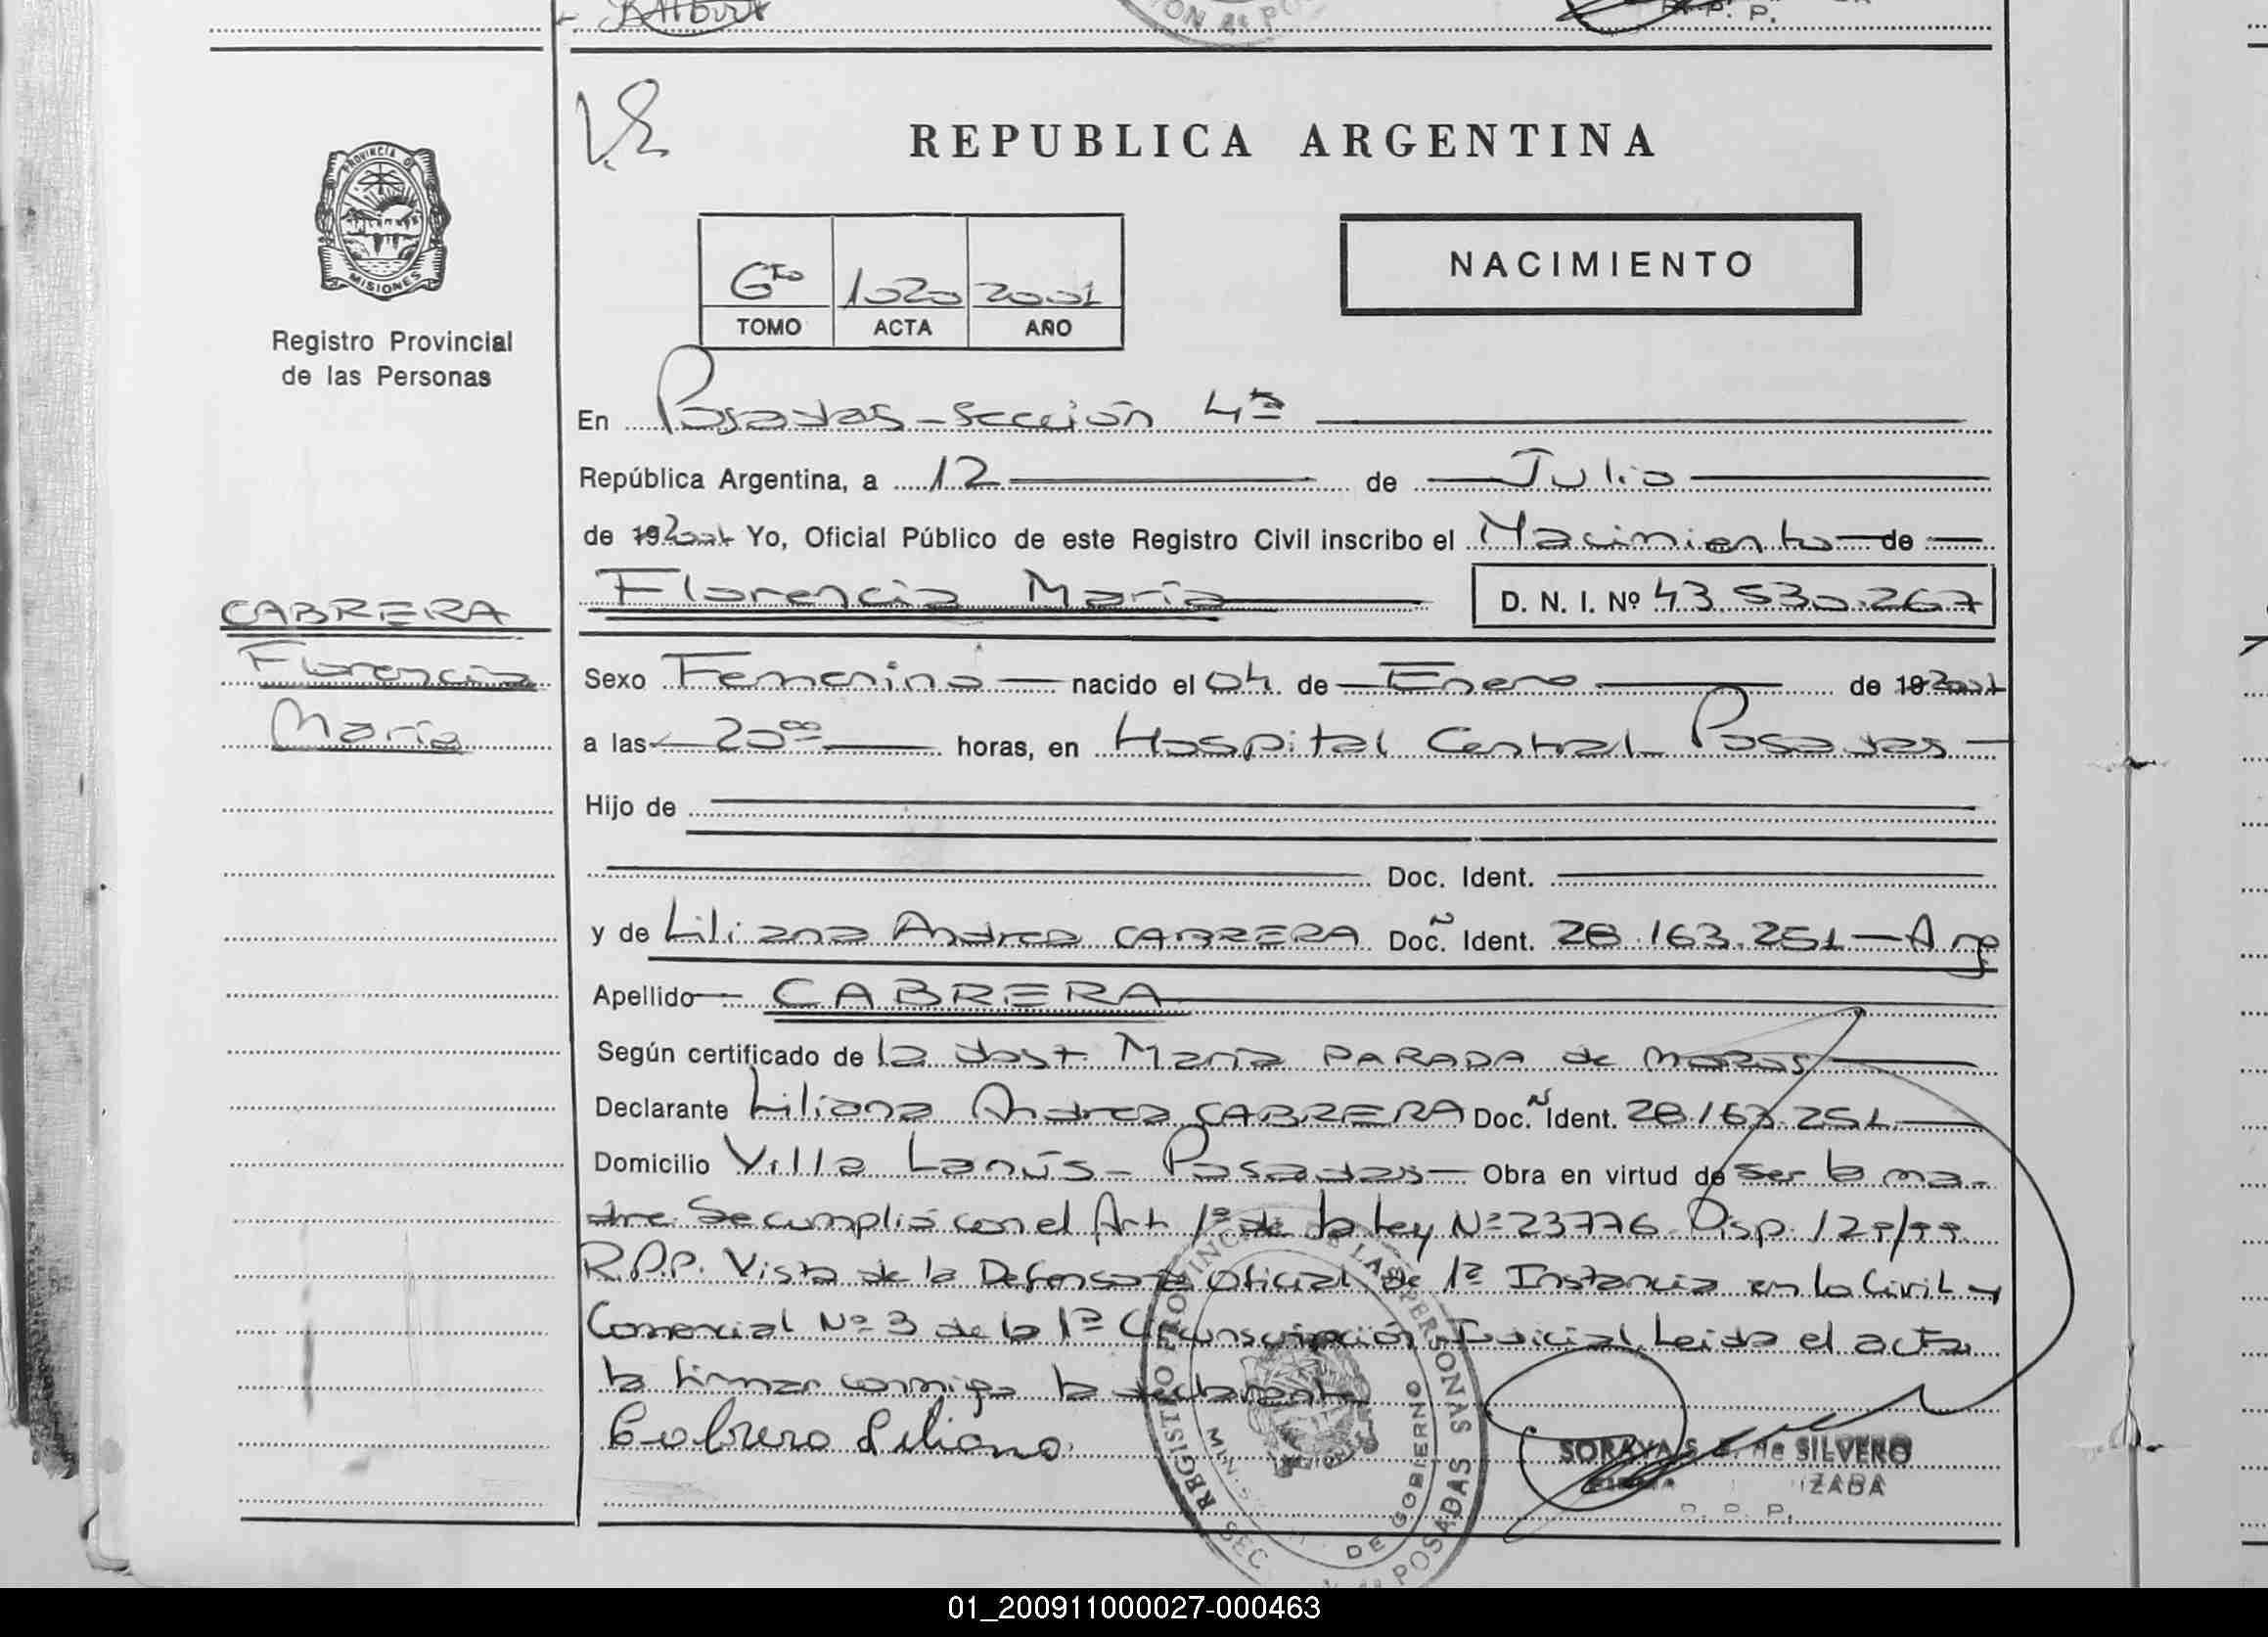 REPUBLICA ARGENTINA
PROVINCIA D
MISIONES
Registro Provincial
de las Personas
6to 1020 2001
TOMO ACTA AÑO
NACIMIENTO
En Posadas - Sección 4ta
República Argentina, a 12 de Julio
de 19 2001 Yo, Oficial Público de este Registro Civil inscribo el Nacimiento de
Florencia María D. N. I. Nº 43.530.267
CABRERA
Florencia
María
Sexo Femenino nacido el 04 de Enero de 19 2001
a las 20 00 horas, en Hospital Central Posadas
Hijo de
Doc. Ident.
y de Liliana Andrea CABRERA Doc. Ident. 28.163.251 - Arg
Apellido CABRERA
Según certificado de la obst. María PARADA de
Declarante Liliana Andrea CABRERA Doc. Ident. 28.163.251
Domicilio Villa Lanús - Posadas Obra en virtud de ser la ma-
dre. Se cumplió con el Art. 1º de la Ley Nº 23776. Disp. 129/99
R.P.P. Vista de la Defensoría Oficial de 1ª Instancia en lo Civil y
Comercial Nº 3 de la 1ª Circunscripción Judicial. Leída el acta
la firman conmigo la declarante
Cabrera Liliana
REGISTRO PROVINCIAL DE LAS PERSONAS
DE GOBIERNO
POSADAS
SORAYA S. de SILVERO
01_200911000027-000463